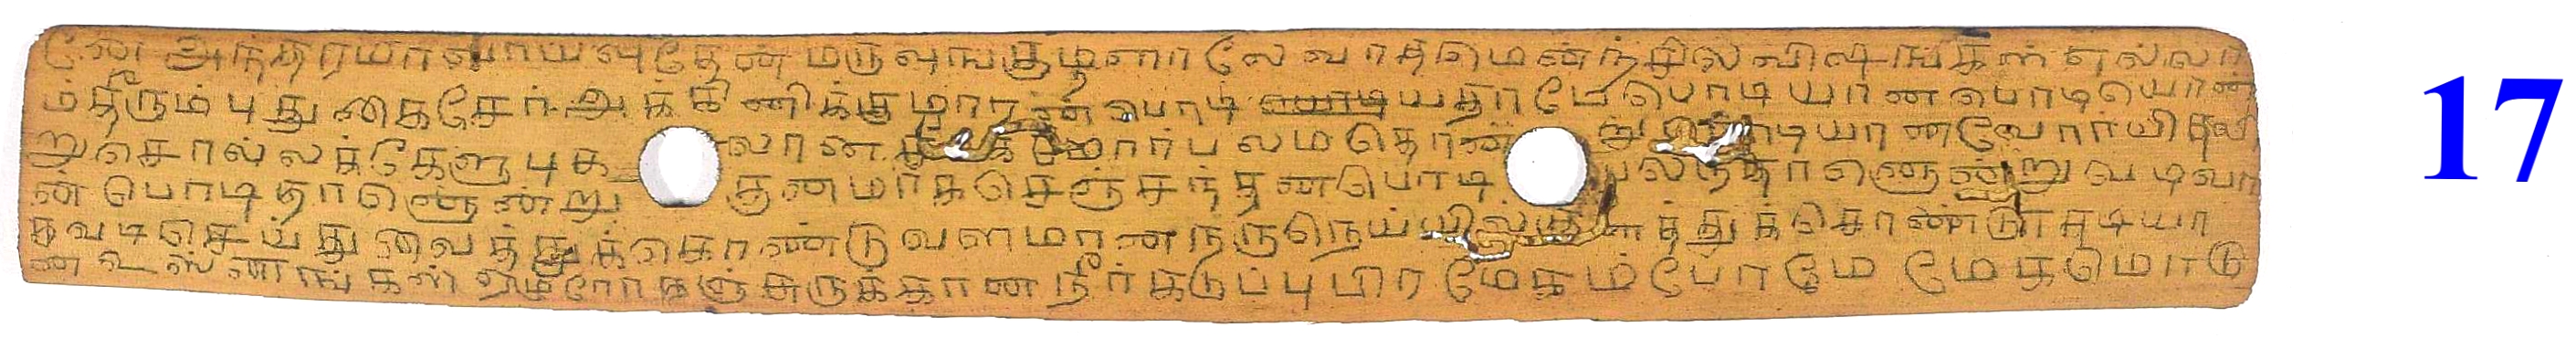 னே அந்தரமாவாயவுதேன் மருவுங்குழளாலே வாதமென்ந்றில் விஷங்கள் எல்லா
ம்தீரும் புது கைசேர் அக்கினிக்குமார ன் பொடி யதாமே பொடி யான பொடியொன்
று சொல்லக்கேளு புக லான மோர்பலமதொன் று டியானவோர்யி
ன் பொடி தானொன்று தனமாக செஞ்சந்தன பொடி பலந்தானொன்று வடிவா
கவடிசெய்து வைத்துக்கொண்டு வளமான நருநெய்யில் த்துக்கொண்டு
ன உஸ்ணங்கள் ஏழுரோகஞ் சுருக்கான நீர்கடுப்பு பிரமேகம்போமே மேகமொடு
17